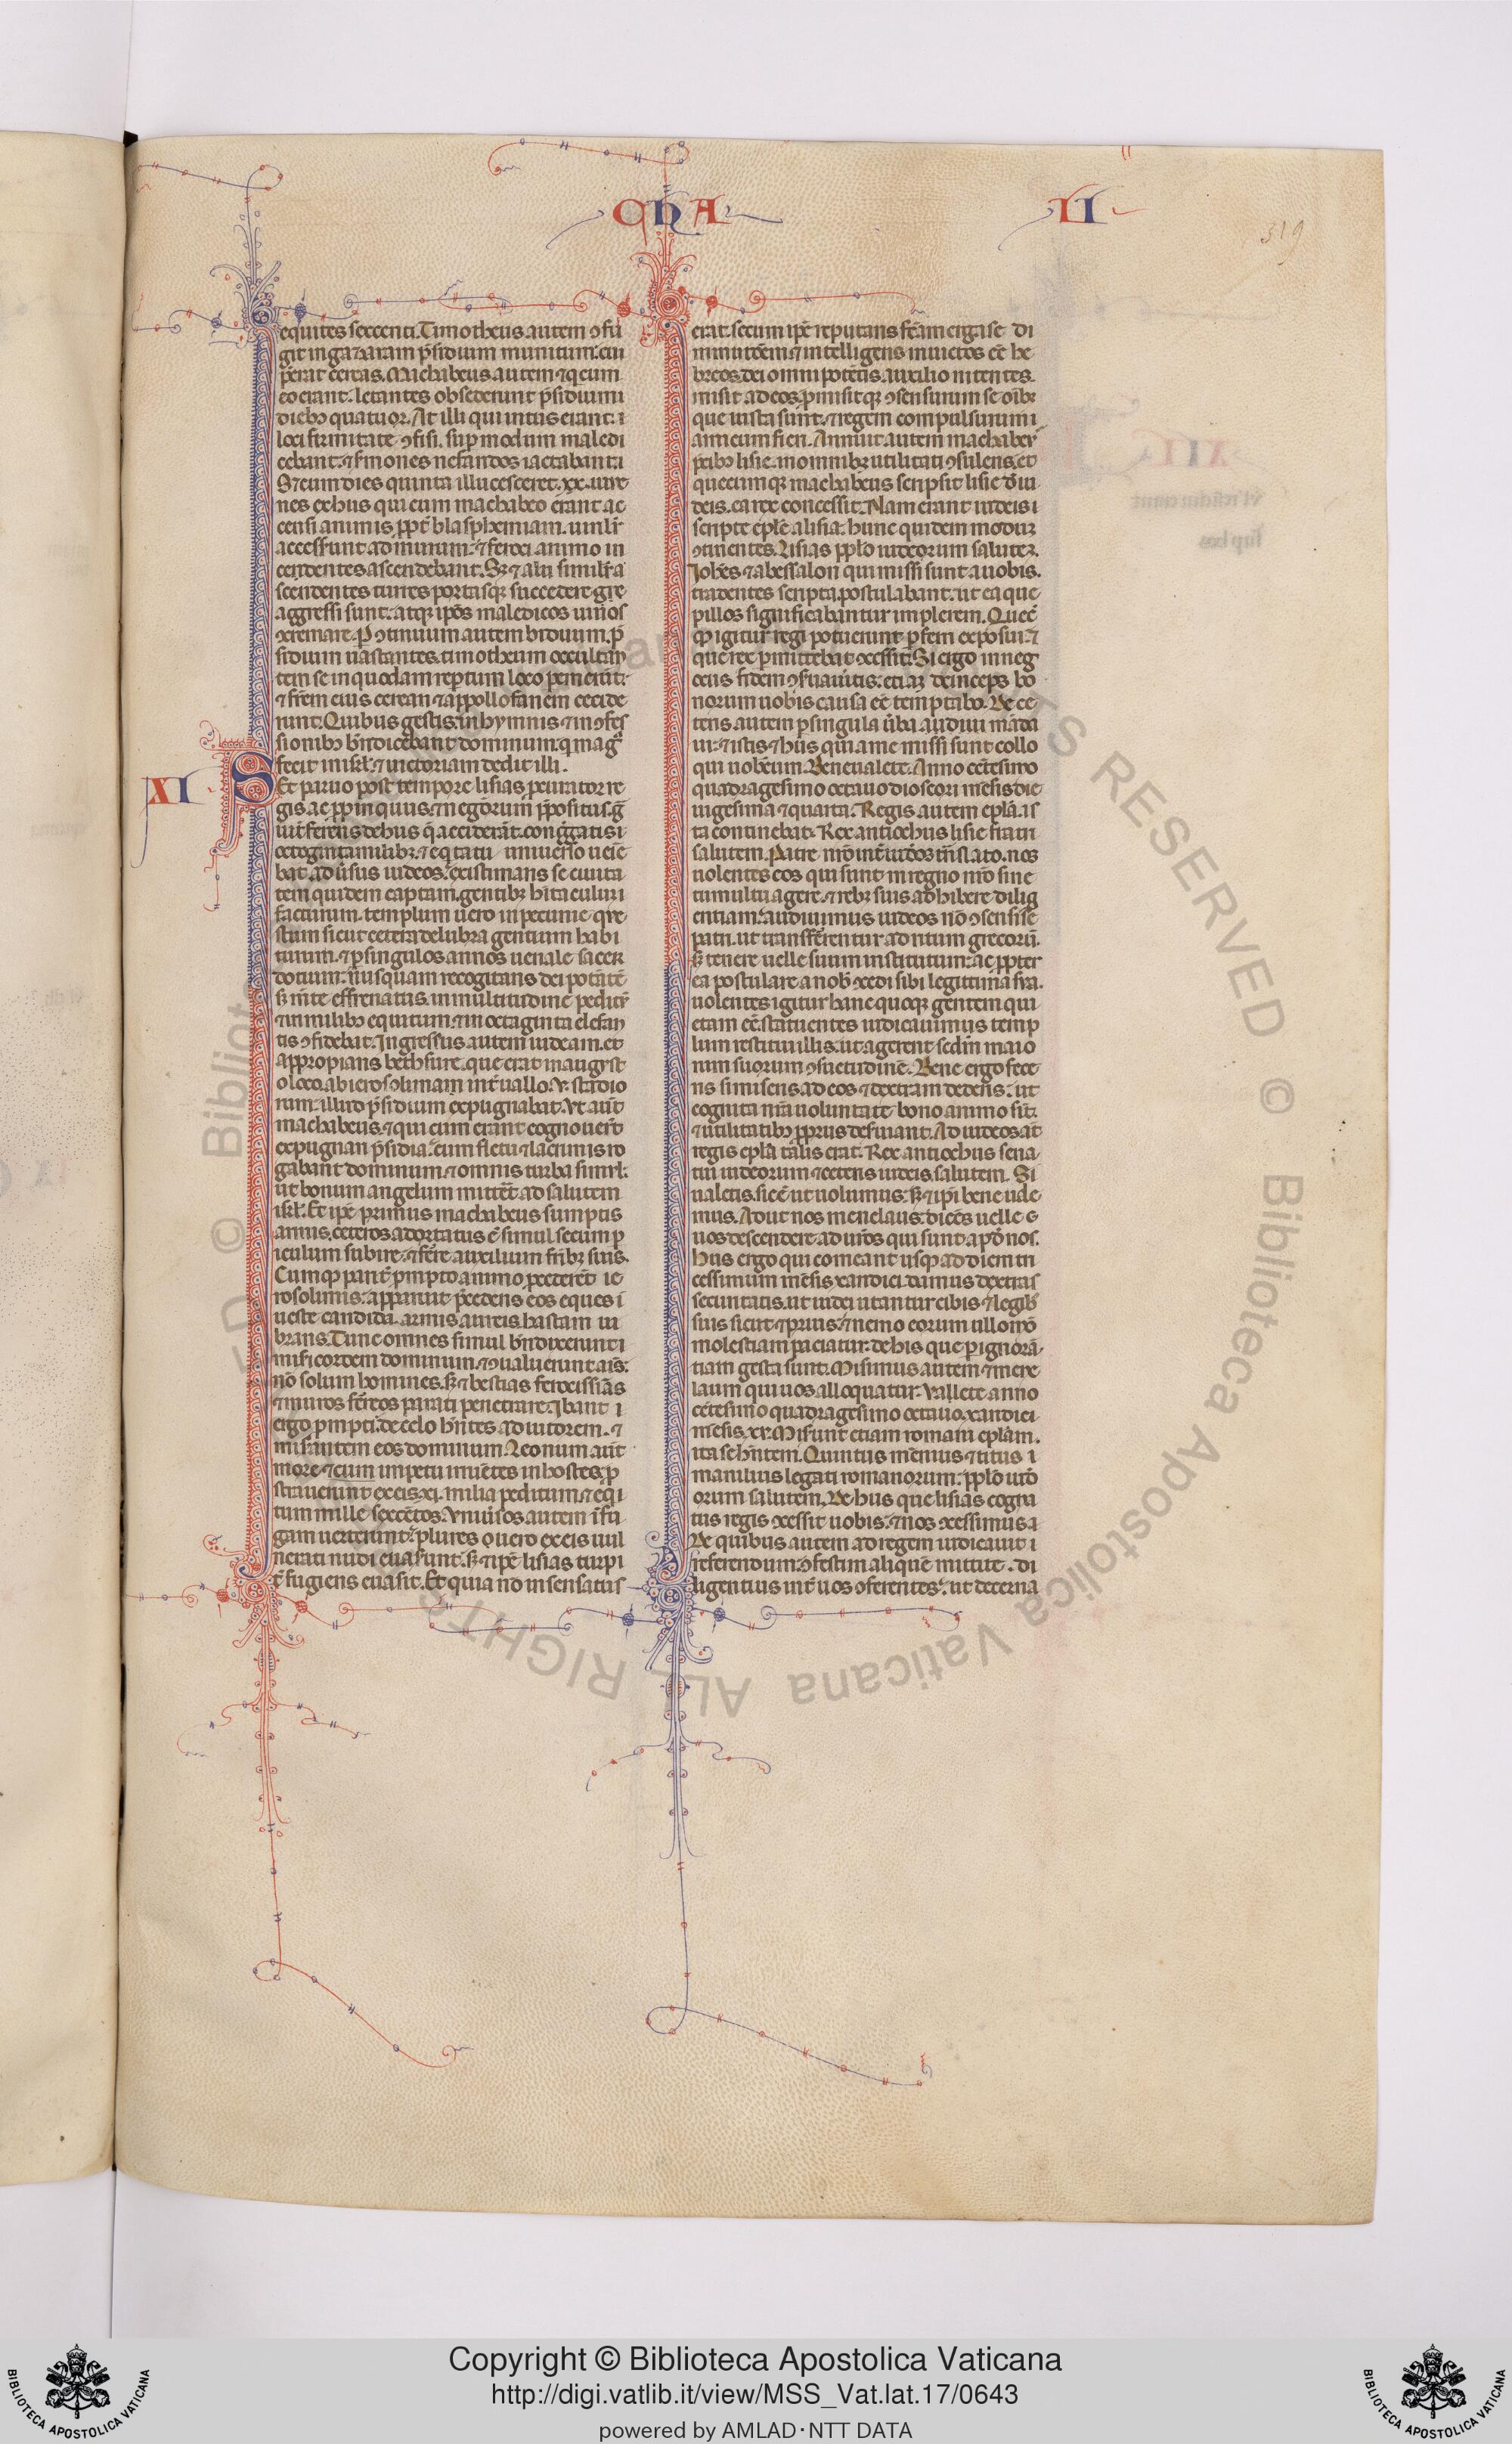 ChA II
319
equites sexcenti. Timotheus autem ꝯfu
git in gazaram p̄sidium munitum. cui
p̄erat cereas. Machabeus autem ⁊ q̇ cum
eo erant. letantes obsederunt p̄sidium i
dieb᷒ quatuor. At illi qui intus erant. i
loci firmitate ꝯfisi. sup̱ modum maledi
cebant. ⁊ s̄mones nefandos iactabant. i
Sꝫ cum dies quinta illucesceret. xx. iuue
nes ex hiis qui cum machabeo erant ac
censi animis ꝓpt̄ blasphemiam. uirilit̄
accesserunt ad murum. ⁊ feroci animo in
cendentes ascendebant. Sꝫ ⁊ alii similit̄ a
scendentes turres portasqꝫ succedere gre
aggressi sunt. atqꝫ ip̄os maledicos uiuos
ꝯcremare. Ꝑ ꝯtinuum autem biduum. p̄
sidium uastantes. timotheum occultan
tem se in quodam rep̱tum loco p̱emerūt.
⁊ fr̄em eius cerean ⁊ appollofanem occide
runt. Quibus gestis. in hymnis ⁊ in ꝯfes
sionib᷒ bn̄dicebant dominum. q̇ magͣ
fecit in isrl̄. ⁊ uictoriam dedit illi.
XI
Set paruo post tempore lisias ꝓcurator re
gis. ac ꝓpinquus. ⁊ negorum p̄positus. gͣ
uit̄ ferens de hiis q̇ acciderāt. congͣgatis i
octoginta milibꝫ. ⁊ eq̇tatu uniuerso uenie
bat. aduersus iudeos. existimans se ciuita
tem quidem captam. gentibꝫ h̄itaculum
facturum. templum uero in pecunie que
stum sicut cetera delubra gentium habi
turum. ⁊ p̱ singulos annos uenale sacer
dotium. nusquam recogitans dei potātē
sꝫ m̄te effrenatus. in multitudine peditū
⁊ in milib᷒ equitum. ⁊ in octaginta elefan
tis ꝯfidebat. Ingressus autem iudeam. et
appropians bethsure. que erat in angust
o loco. ab ierosolimam int̄uallo. v. stadio
rum. illud p̄sidium expugnabat. Vt aūt
machabeus. ⁊ qui cum erant cognouerūt
expugnari p̄sidia. cum fletu ⁊ lacrimis ro
gabant dominum. ⁊ omnis turba simul.
ut bonum angelum mittet̄ ad salutem
isrl̄. Et ip̄e primus machabeus sumptis
armis. ceteros adortatus ē simul secum p̱
iculum subire. ⁊ ferre auxilium fr̄ibꝫ suis.
Cumqꝫ parit̄ ꝓmpto animo ꝓcederēt. ie
rosolimis. apparuit p̄cedens eos eques i
ueste candida. armis aureis hastam ui
brans. Tunc omnes simul bn̄dixerunt i
misericordem dominum. ⁊ ꝯualuerunt aīs.
nō solum homines. sꝫ ⁊ bestias ferocissimas
⁊ muros ferreos parati penetrare. Ibant i
ergo ꝓmpti. de celo hn̄tes adiutorem. ⁊
miserantem eos dominum. Leonum aūt
more. ⁊ cum impetu iruētes in hostes. ꝓ
strauerunt ex eis. xi. milia peditum. ⁊ eq̇
tum mille sexcētos. Vniūsos autem ī fu
gam uerterunt. plures q̇ uero ex eis uul
nerati nudi euaserunt. sꝫ ⁊ ip̄e lisias turpi
t̄ fugiens euasit. Et quia nō insensatus
erat. secum ip̄e reputans f̄cam erga se di
minutōem. ⁊ intelligens inuictos eē he
breos. dei omnipotētis. auxilio nitentes.
misit ad eos. ꝓmisitqꝫ ꝯsensurum se oīb᷒
que iusta sunt. ⁊ regem compulsurum i
amicum fieri. Annuit autem machabeꝰ
p̄cib᷒ lisie. in omnibꝫ utilitati ꝯsulens. et
quecumqꝫ machabeus scripsit lisie d̄ iu
deis. ea rex concessit. Nam erant iudeis i
scripte ep̄le a lisia. hunc quidem modum
ꝯtinentes. Lisias pp̄lo iudeorum salutē.
Ioh̄es ⁊ abessalon qui missi sunt a uobis.
tradentes scripta. postulabant. ut ea que
p̱ illos significabantur implerem. Quecū
qꝫ igitur regi potuerunt p̱ferri exposui. ⁊
que rex p̱mittebat ꝯcessit. Si ergo in neg
ociis fidem ꝯseruauitis. etiā deinceps bo
norum uobis causa eē temptabo. De ce
teris autem p̱ singula ūba. audiui mādā
ui. ⁊ istis ⁊ hiis qui a me missi sunt collo
qui uobēum. Beneualete. Anno cētesimo
quadragesimo octauo dioscori mēsis die
uigesima ⁊ quarta. Regis autem ep̄la is
ta continebat. Rex antiochus lisie fratri
salutem. Patre nr̄o int̄ iudeos trāslato. nos
uolentes eos qui sunt in regno nr̄o sine
tumultu agere. ⁊ rebꝫ suis adhibere dilig
entiam. audiuimus iudeos nō ꝯsensisse
patri. ut transferrentur ad ritum grecorū.
sꝫ tenere uelle suum institutum. ac ꝓpter
ea postulare a nob̄ ꝯcedi sibi legittima sua.
uolentes igitur hanc quoqꝫ gentem qui
etam eē. statuentes iudicauimus temp
lum restitui illis. ut agerent sedm̄ maio
rum suorum ꝯsuetudinē. Bene ergo fece
ris si miseris ad eos ⁊ dextram dederis. ut
cognita nr̄a uoluntate. bono animo sint.
⁊ utilitatib᷒ ꝓpriis deseruiant. Ad iudeos aūt
regis ep̄la talis erat. Rex antiochus sena
tui iudeorum ⁊ ceteris iudeis. salutem. Si
ualetis. sic ē ut uolumus. sꝫ ⁊ ip̄i bene uale
mus. Adiit nos menelaus. dicēs uelle
uos descendere ad ur̄os qui sunt apd̄ nos.
Hiis ergo qui comeant usqꝫ ad diem tri
cessimum mēsis xandici. damus dextras
securitatis. ut iudei utantur cibis ⁊ legib᷒
suis sicut ⁊ prius. ⁊ nemo eorum ullo mō
molestiam paciatur. de his que p̱ ignorā
tiam gesta sunt. Misimus autem ⁊ mene
laum qui uos alloquatur. Vallete. anno
cētesimo quadragesimo octauo. xandici
mēsis. xv. Miserunt etiam romani ep̄lam.
ita se hn̄tem. Quintus mēmius ⁊ titus i
manilius legati romanorum. pp̄lo iud
orum salutem. De hiis que lisias cogna
tus regis ꝯcessit uobis. ⁊ nos ꝯcessimus. i
De quibus autem ad regem iudicauit i
referendum. ꝯfestim aliquē mittite. di
ligentius int̄ uos ꝯferentes. ut decerna
Copyright © Biblioteca Apostolica Vaticana
http://digi.vatlib.it/view/MSS_Vat.lat.17/0643
powered by AMLAD·NTT DATA
BIBLIOTECA APOSTOLICA VATICANA
BIBLIOTECA APOSTOLICA VATICANA